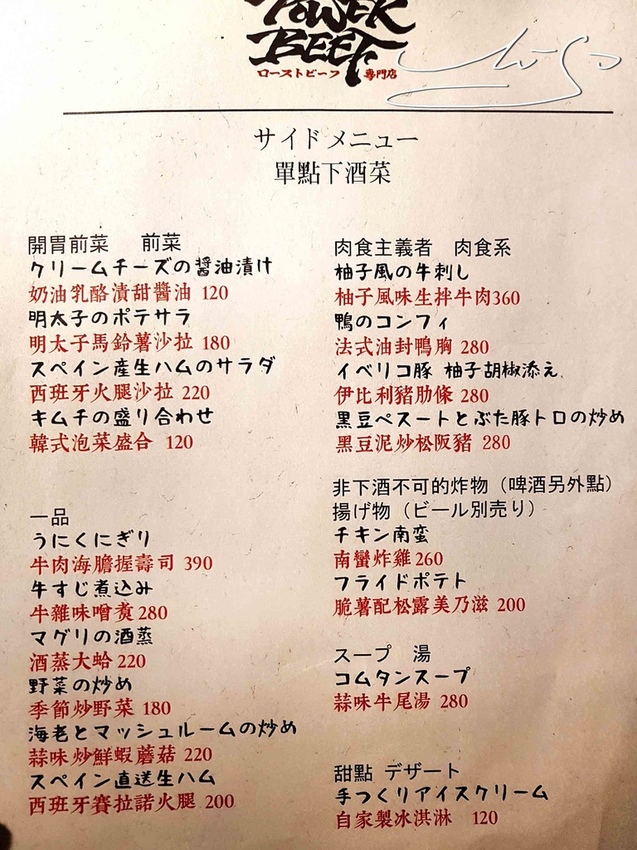 POWER
BEEF
ローストビーフ 専門店
サイドメニュー
單點下酒菜
開胃前菜 前菜
クリームチーズの醤油漬け
奶油乳酪漬甜醬油 120
明太子のポテサラ
明太子馬鈴薯沙拉 180
スペイン産生ハムのサラダ
西班牙火腿沙拉 220
キムチの盛り合わせ
韓式泡菜盛合 120
一品
うにくにぎり
牛肉海膽握壽司 390
牛すじ煮込み
牛雜味噌煮 280
マグリの酒蒸
酒蒸大蛤 220
野菜の炒め
季節炒野菜 180
海老とマッシュルームの炒め
蒜味炒鮮蝦蘑菇 220
スペイン直送生ハム
西班牙賽拉諾火腿 200
肉食主義者 肉食系
柚子風の牛刺し
柚子風味生拌牛肉360
鴨のコンフィ
法式油封鴨胸 280
イベリコ豚 柚子胡椒添え
伊比利豬肋條 280
黒豆ペスートとぶた豚トロの炒め
黑豆泥炒松阪豬 280
非下酒不可的炸物（啤酒另外點）
揚げ物（ビール別売り）
チキン南蛮
南蠻炸雞 260
フライドポテト
脆薯配松露美乃滋 200
スープ 湯
コムタンスープ
蒜味牛尾湯 280
甜點 デザート
手つくりアイスクリーム
自家製冰淇淋 120